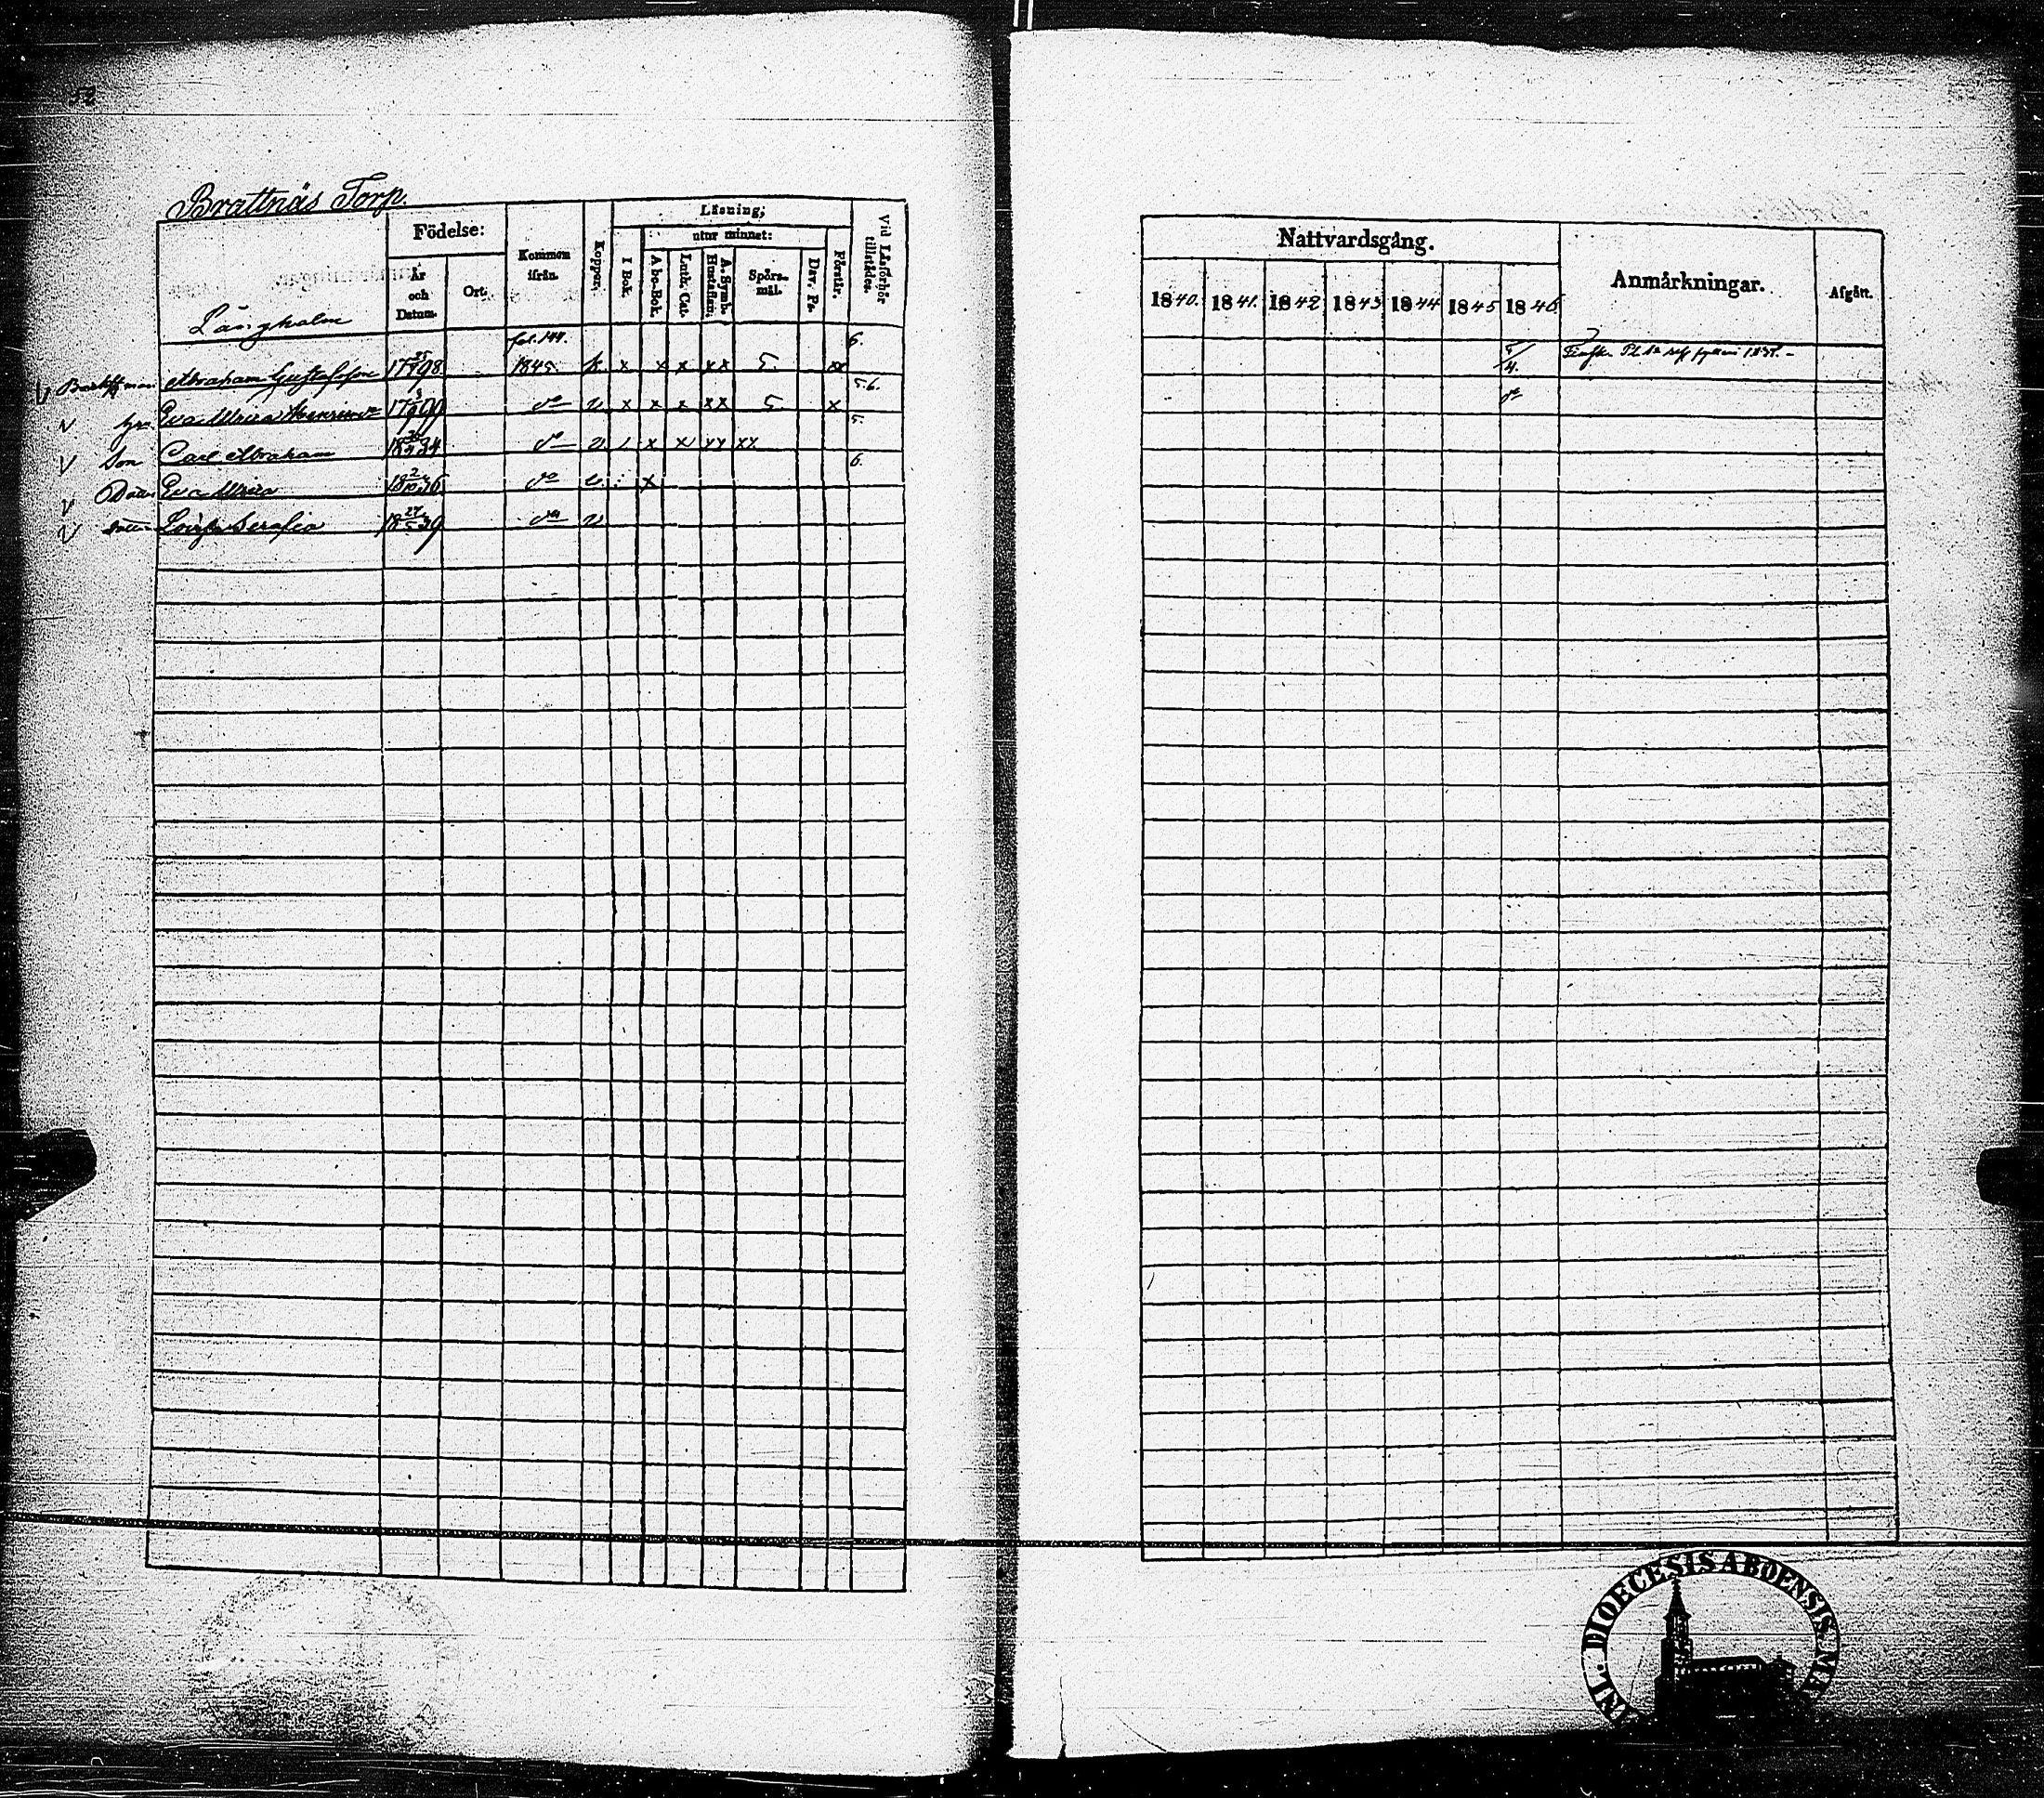 52
Brattnäs Torp.
Födelse:
År och Datum.
Ort.
Kommen ifrån.
Koppor.
Läsning;
I Bok.
utur minnet:
A b c-Bok.
Luth. Cat.
A. Symb. Hustaflan.
Spörs-mål.
Dav. Ps.
Förstår.
Vid Läsförhör tillstädes.
Långholm
fol. 144. 6.
Abraham Gustafsson 17 25 98 1845. k. x x x xx 5. xx 5.6.
hu Eva Ulrica Henricsr 17 99 do v. x x x xx 5. x 5.
Son Carl Abraham 18 34 do v. x x xx xx 6.
Dott. Eva Ulrica 18 2/10 36 do v. x
Dotter Lovisa Serafia 18 27/5 39 do v
Nattvardsgång.
1840. 1841. 1842 1843 1844 1845 1846.
Anmärkningar.
Afgått.
5/4.
do
DIOECESIS ABOENSIS